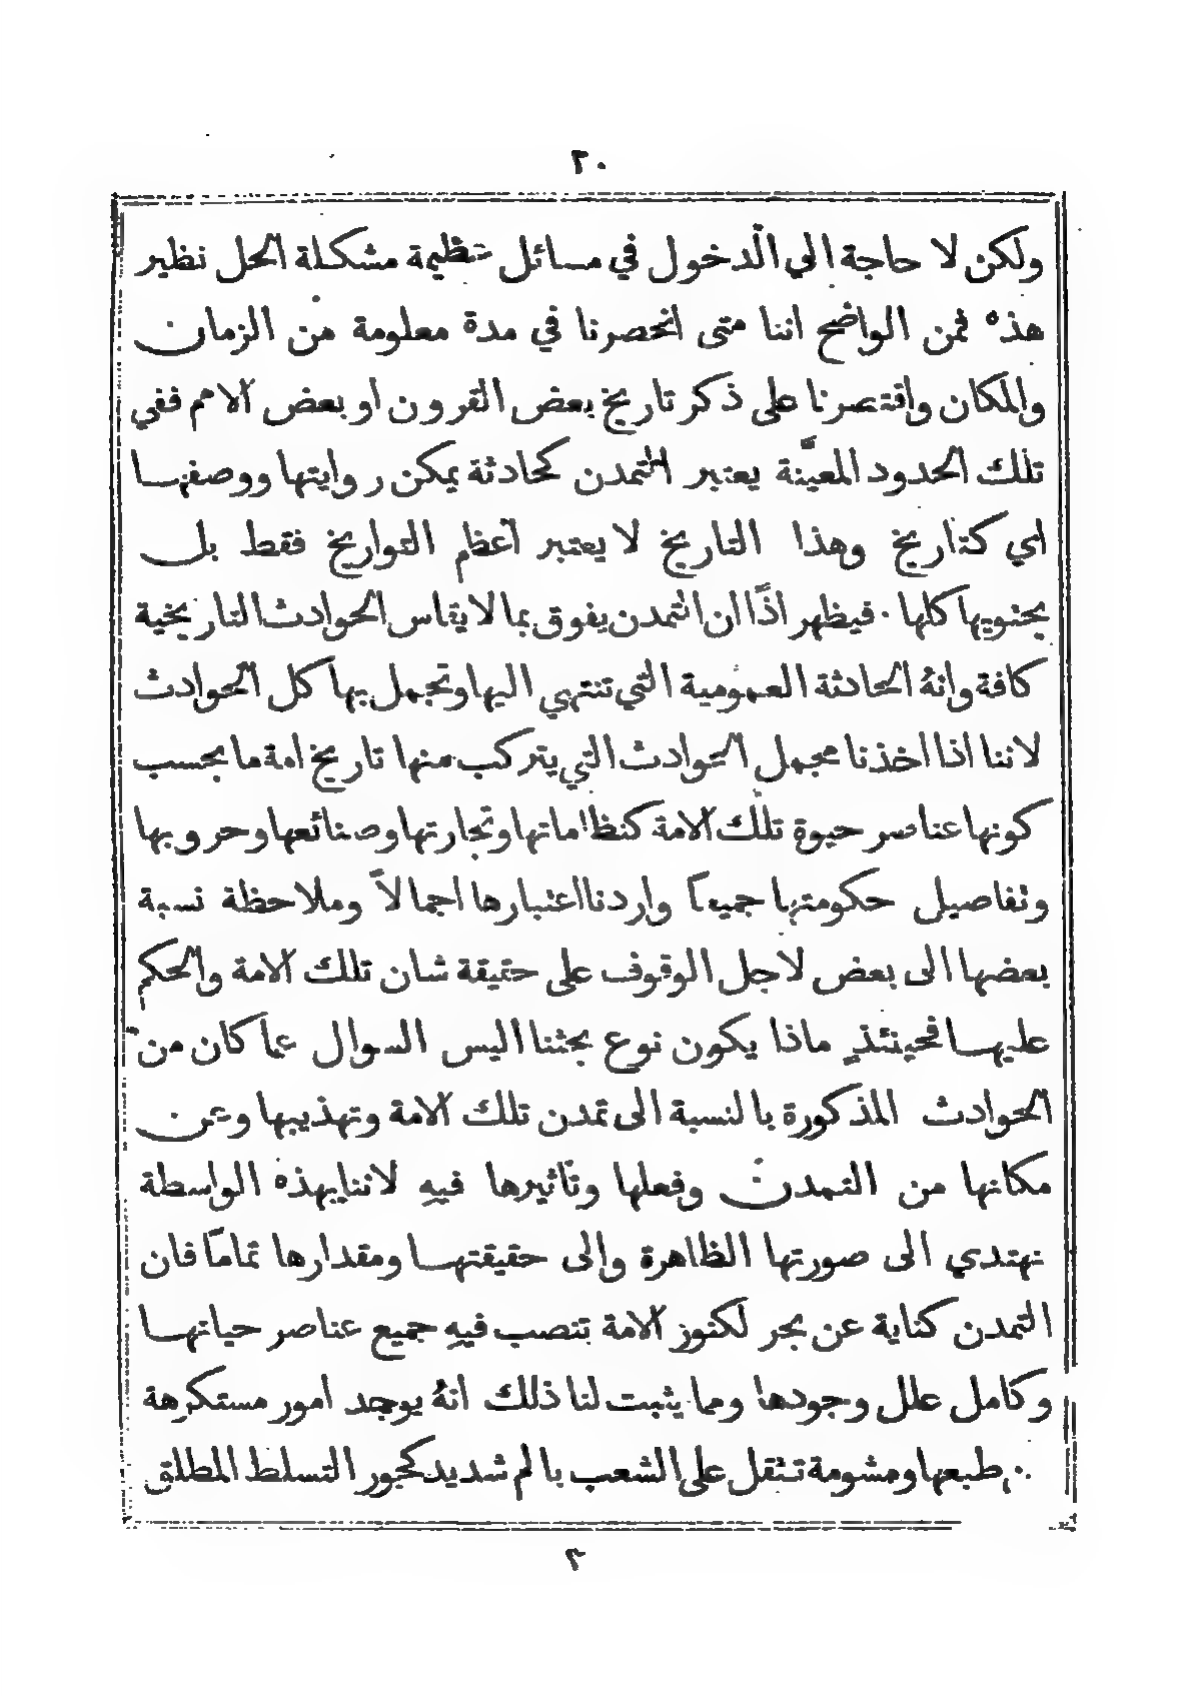 ٢٠
ولكن لا حاجة الى الدخول في مسائل عظيمة مشكلة الحل نظير
هذه فمن الواضح اننا متى انحصرنا في مدة معلومة من الزمان
والمكان واقتصرنا على ذكر تاريخ بعض القرون او بعض الامم ففي
تلك الحدود المعيَّنة يعتبر التمدن كحادثة يمكن روايتها ووصفها
اي كتاريخ وهذا التاريخ لا يعتبر اعظم التواريخ فقط بل
يحتويها كلها ٠ فيظهر اذًا ان التمدن يفوق بما لا يقاس الحوادث التاريخية
كافة وانهُ الحادثة العمومية التي تنتهي اليها وتجمل بها كل الحوادث
لاننا اذا اخذنا مجمل الحوادث التي يتركب منها تاريخ امة ما بحسب
كونها عناصر حيوة تلك الامة كنظاماتها وتجارتها وصنائعها وحروبها
وتفاصيل حكومتها جميعًا واردنا اعتبارها اجمالاً وملاحظة نسبة
بعضها الى بعض لاجل الوقوف على حقيقة شان تلك الامة والحكم
عليها فحينئذٍ ماذا يكون نوع بحثنا اليس السوال عما كان من
الحوادث المذكورة بالنسبة الى تمدن تلك الامة وتهذيبها وعن
مكانها من التمدن وفعلها وتاثيرها فيهِ لاننا بهذه الواسطة
نهتدي الى صورتها الظاهرة والى حقيقتها ومقدارها تمامًا فان
التمدن كناية عن بحر لكنوز الامة تنصب فيهِ جميع عناصر حياتها
وكامل علل وجودها ومما يثبت لنا ذلك انهُ يوجد امور مستكرهة
من طبعها ومشومة تثقل على الشعب بالم شديد كجور التسلط المطلق
٣